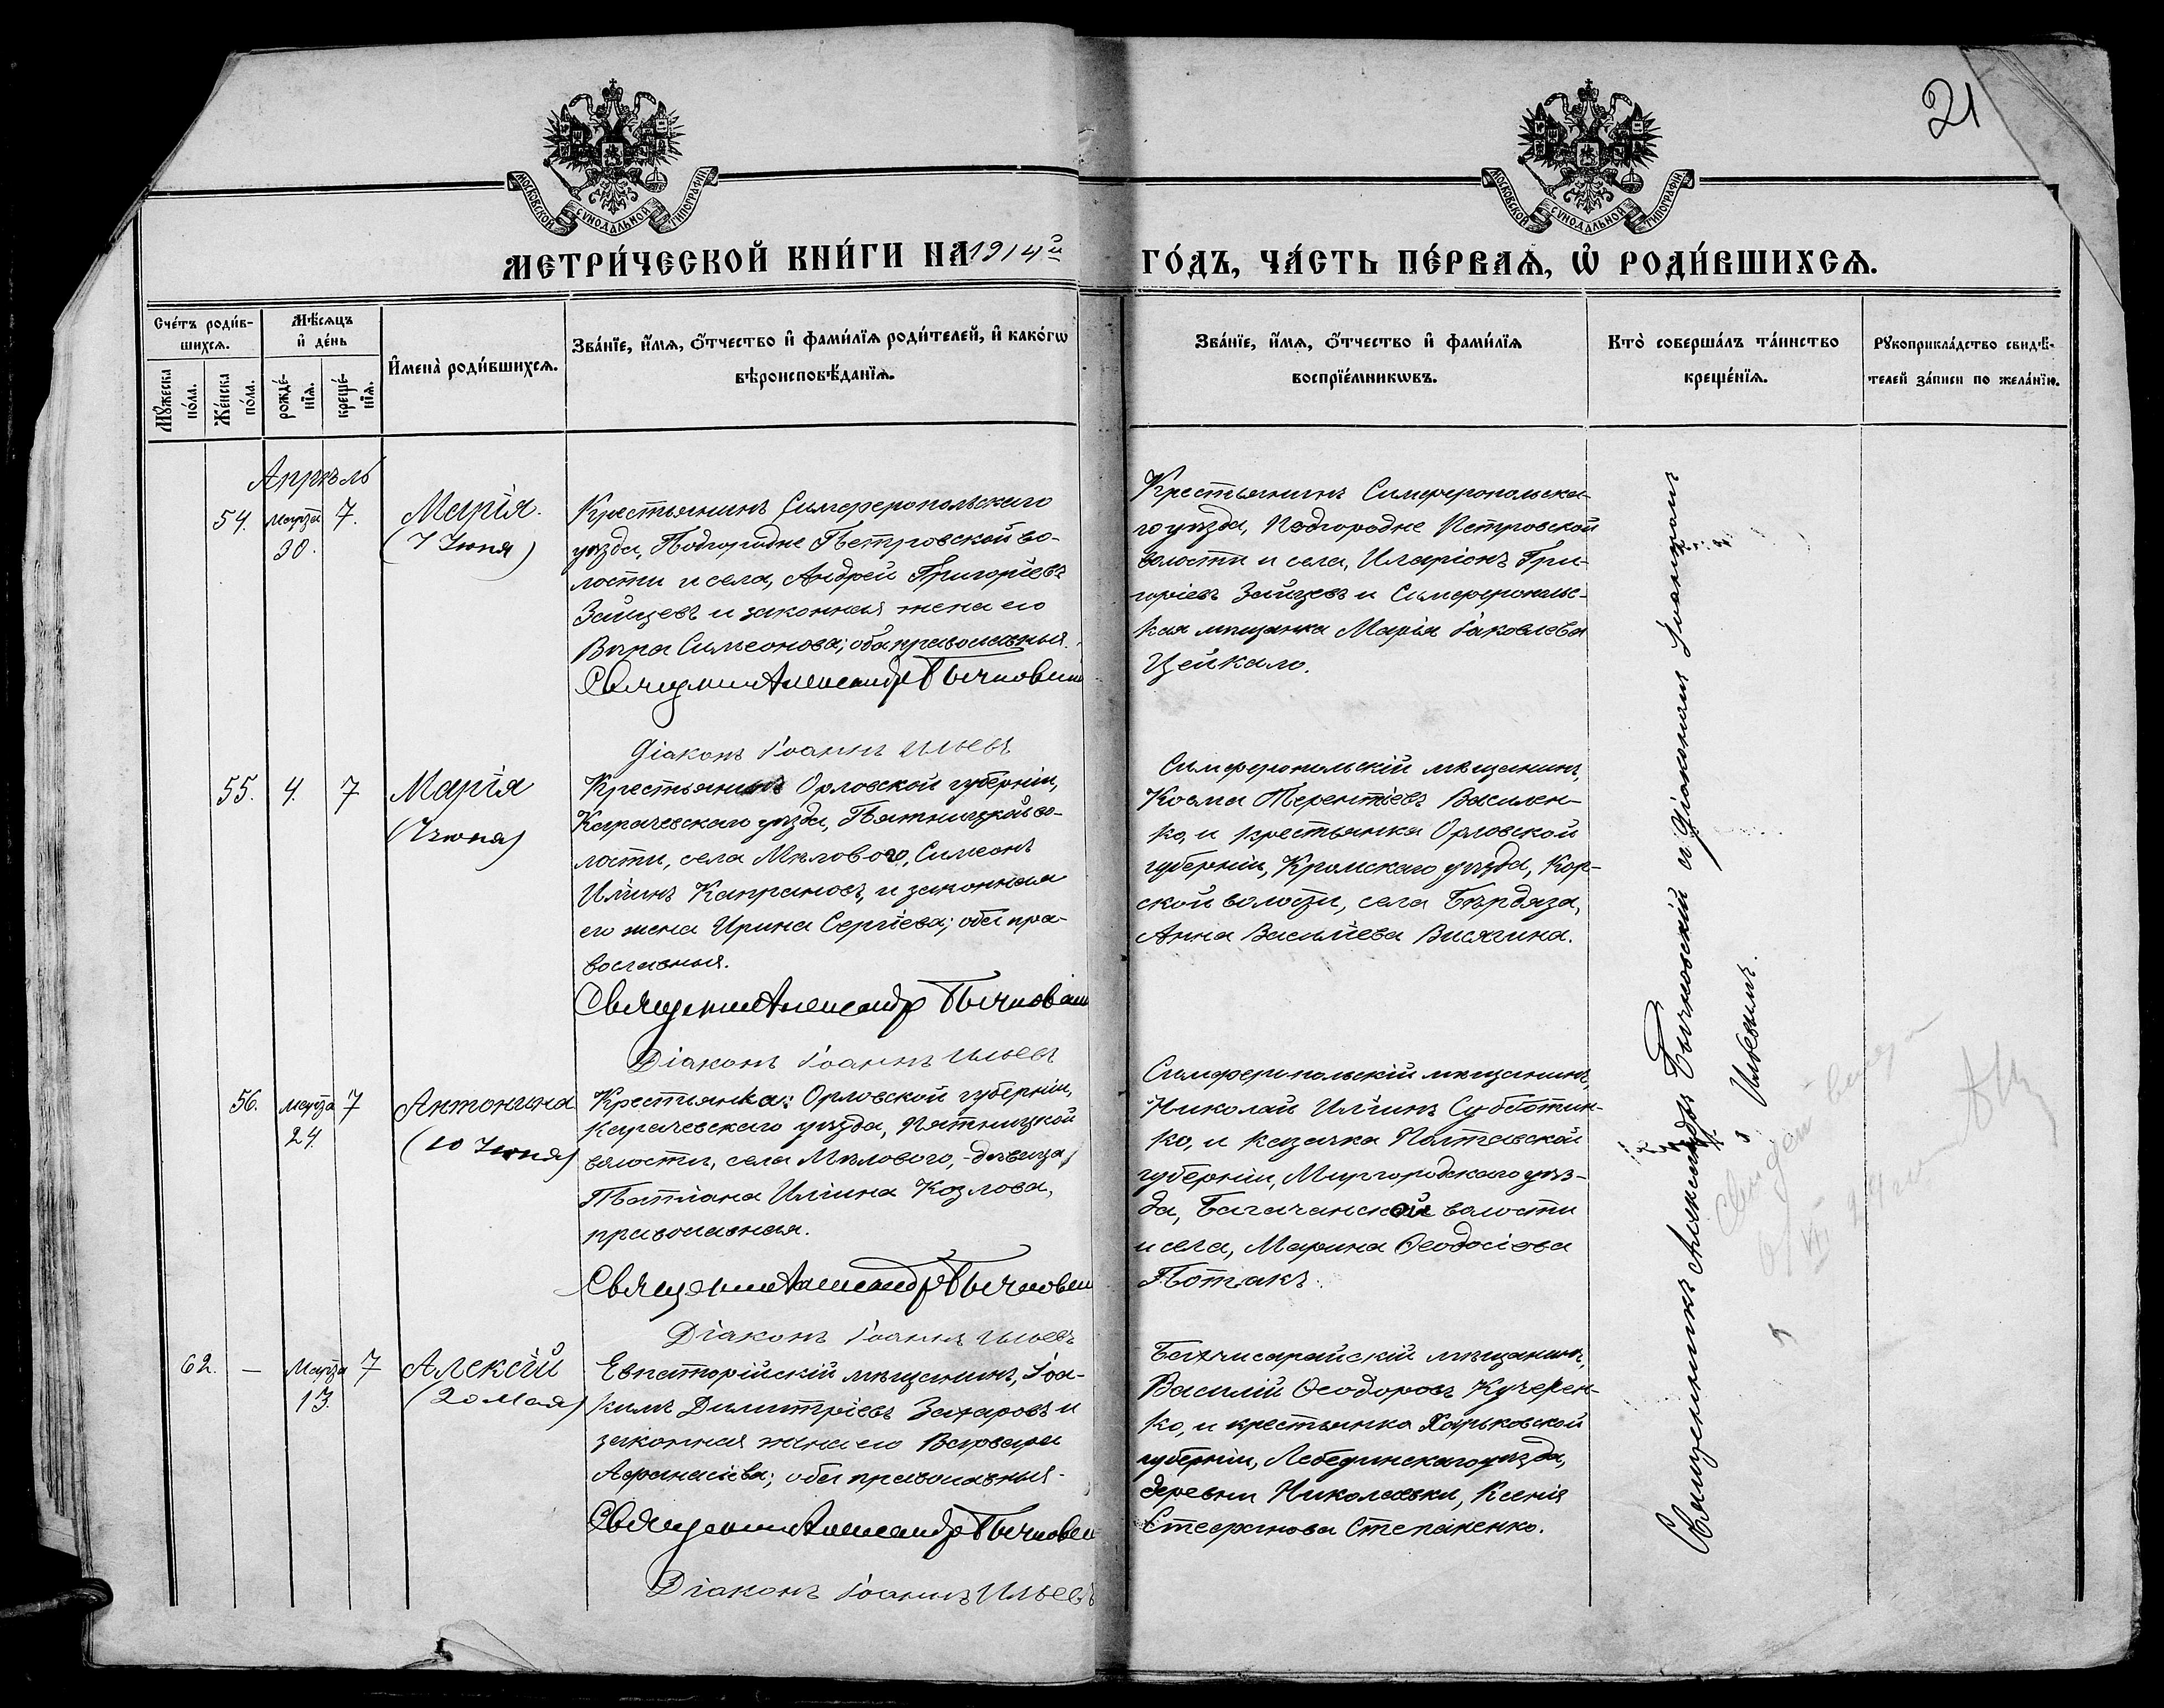 21
МОСКОВСКОЙ СѴНОДАЛЬНОЙ ТИПОГРАФІИ
МОСКОВСКОЙ СѴНОДАЛЬНОЙ ТИПОГРАФІИ
МЕТРИ́ЧЕСКОЙ КНИ́ГИ НА 1914й ГО́ДЪ, ЧА́СТЬ ПЕ́РВАѦ, Ѡ҆ РОДИ́ВШИХСѦ.
Сче́тъ роди́в-
шихсѧ.
Мѣ́сѧцъ
и҆ де́нь
Мꙋ́жеска
по́ла.
Же́нска
по́ла.
рожде́-
нїѧ.
креще́-
нїѧ.
И҆мена̀ роди́вшихсѧ.
Зва́нїе, и҆́мѧ, ѻ҆́тчество и҆ фами́лїѧ роди́телей, и҆ како́гѡ
вѣроисповѣ́данїѧ.
Зва́нїе, и҆́мѧ, ѻ҆́тчество и҆ фами́лїѧ
воспрїе́мникѡвъ.
Кто̀ соверша́лъ та́инство
креще́нїѧ.
Рꙋкоприкла́дство свидѣ́-
телей за́писи по жела́нїю.
Апрѣль
54. марта 30. 7.
Марія.
(7 Іюня)
Крестьянинъ Симферопольскаго
уѣзда, Подгородне Петровской во-
лости и села, Андрей Григоріевъ
Зайцевъ и законная жена его
Вѣра Симеонова; оба православныя.
Священникъ Александръ Бычковскій
Діаконъ Іоаннъ Ильевъ
Крестьянинъ Симферопольска-
го уѣзда, Подгородне Петровской
волости и села, Иларіонъ Гри-
горіевъ Зайцевъ и Симферополь-
ская мѣщанка Марія Іаковлева
Цейкало.
55. 4. 7
Марія
(7 іюня)
Крестьянинъ Орловской губерніи,
Карачевскаго уѣзда, Пятницкой во-
лости, села Мѣлового, Симеонъ
Иліинъ Капрановъ, и законная
его жена Ирина Сергіева; оба пра-
вославныя.
Священникъ Александръ Бычковскій
Діаконъ Іоаннъ Ильевъ
Симферопольскій мѣщанинъ,
Косма Терентіевъ Василен-
ко, и крестьянка Орловской
губерніи, Кромскаго уѣзда, Кор-
ской волости, села Бѣрдяза,
Анна Василіева Висягина.
56. марта 24. 7
Антонина
(10 Іюня)
Крестьянка: Орловской губерніи,
Карачевскаго уѣзда, Пятницкой
волости, села Мѣлового, - дѣвица,
Татіана Иліина Козлова,
православная.
Священникъ Александръ Бычковскій
Діаконъ Іоаннъ Ильевъ
Симферопольскій мѣщанинъ,
Николай Иліинъ Субботин-
ко, и казачка Полтавской
губерніи, Миргородскаго уѣз-
да, Багачанской волости
и села, Марина Ѳеодосіева
Потакъ.
62. — Марта 13. 7
Алексій
(20 Мая)
Евпаторійскій мѣщанинъ, Іоа-
кимъ Димитріевъ Захаровъ и
законная жена его Варвара
Аѳанасіева; оба православныя.
Священникъ Александръ Бычковскій
Діаконъ Іоаннъ Ильевъ
Бахчисарайскій мѣщанинъ,
Василій Ѳеодоровъ Кучерен-
ко, и крестьянка Харьковской
губерніи, Лебединскаго уѣзда,
деревни Николаевки, Ксенія
Стефанова Степаненко.
Священникъ Александръ Бычковскій и діакономъ Іоанномъ
Ильевымъ.